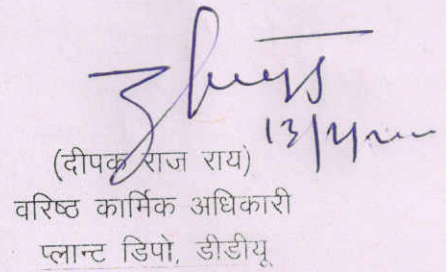 (दीपक राज राय)
वरिष्ठ कार्मिक अधिकारी
प्लान्ट डिपो, डीडीयू